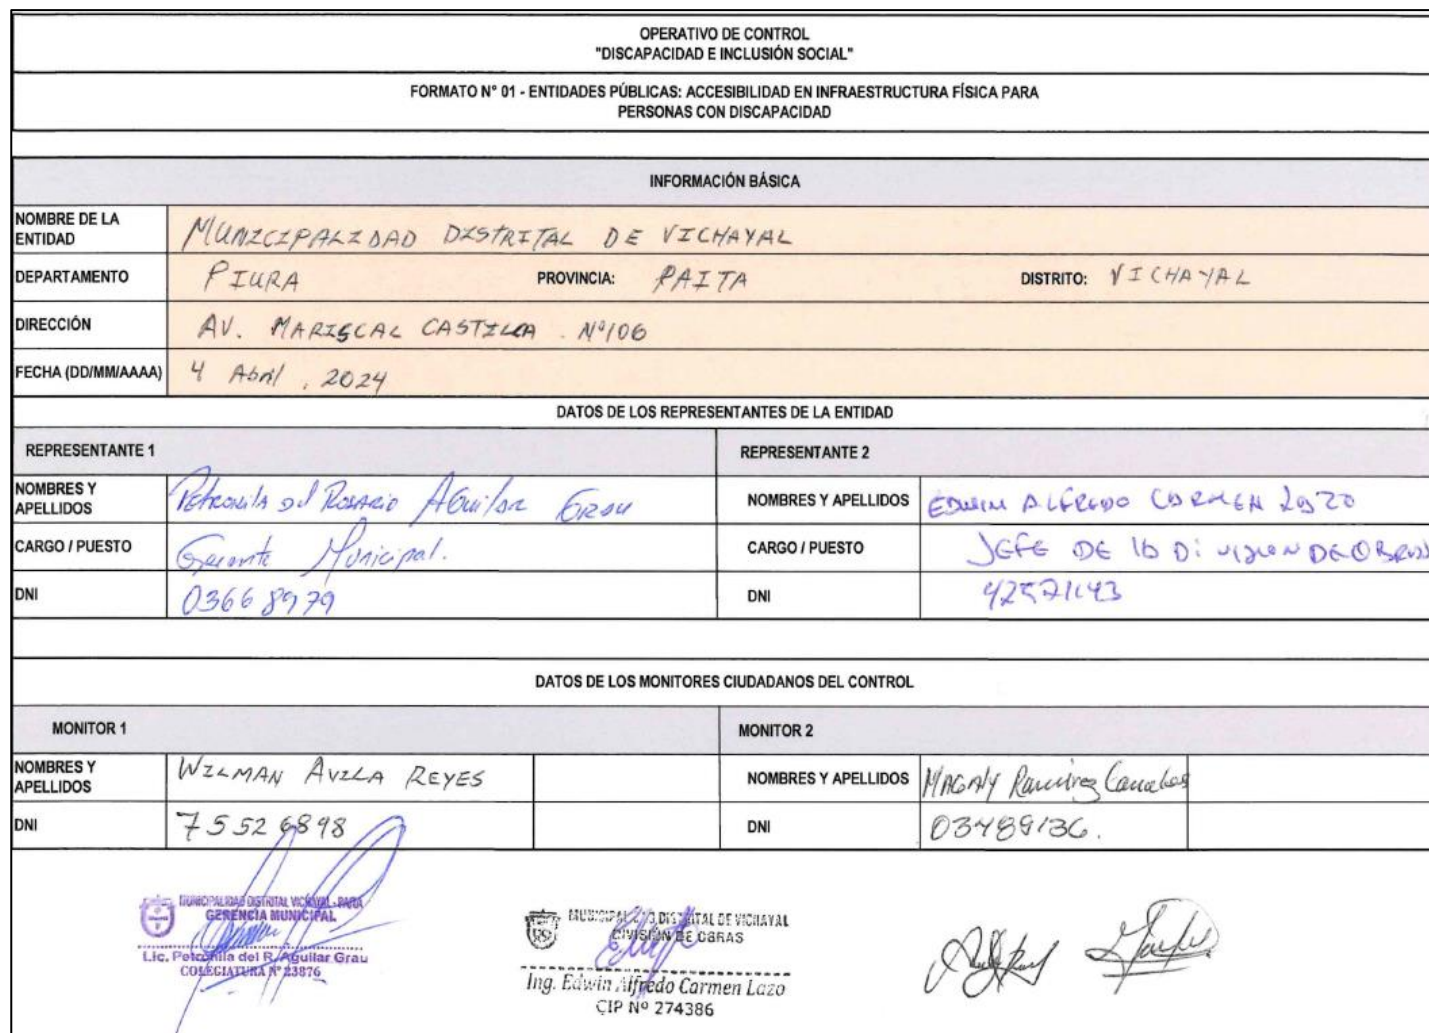 OPERATIVO DE CONTROL
"DISCAPACIDAD E INCLUSIÓN SOCIAL"
FORMATO N° 01 - ENTIDADES PÚBLICAS: ACCESIBILIDAD EN INFRAESTRUCTURA FÍSICA PARA
PERSONAS CON DISCAPACIDAD
INFORMACIÓN BÁSICA
NOMBRE DE LA ENTIDAD MUNICIPALIDAD DISTRITAL DE VICHAYAL
DEPARTAMENTO PIURA PROVINCIA: PAITA DISTRITO: VICHAYAL
DIRECCIÓN AV. MARISCAL CASTILLA. N°106
FECHA (DD/MM/AAAA) 4 Abril, 2024
DATOS DE LOS REPRESENTANTES DE LA ENTIDAD
REPRESENTANTE 1 REPRESENTANTE 2
NOMBRES Y APELLIDOS Petronila del Rosario Aguilar Grau NOMBRES Y APELLIDOS EDWIN ALFREDO CARMEN LAZO
CARGO / PUESTO Gerente Municipal. CARGO / PUESTO JEFE DE la DIVISION DE OBRAS
DNI 03668979 DNI 42571143
DATOS DE LOS MONITORES CIUDADANOS DEL CONTROL
MONITOR 1 MONITOR 2
NOMBRES Y APELLIDOS WILMAN AVILA REYES NOMBRES Y APELLIDOS MAGALY Ramirez
DNI 75526898 DNI 03489136.
MUNICIPALIDAD DISTRITAL VICHAYAL - PAITA
GERENCIA MUNICIPAL
Lic. Petronila del R. Aguilar Grau
COLEGIATURA N° 23876
MUNICIPALIDAD DISTRITAL DE VICHAYAL
DIVISIÓN DE OBRAS
Ing. Edwin Alfredo Carmen Lazo
CIP Nº 274386